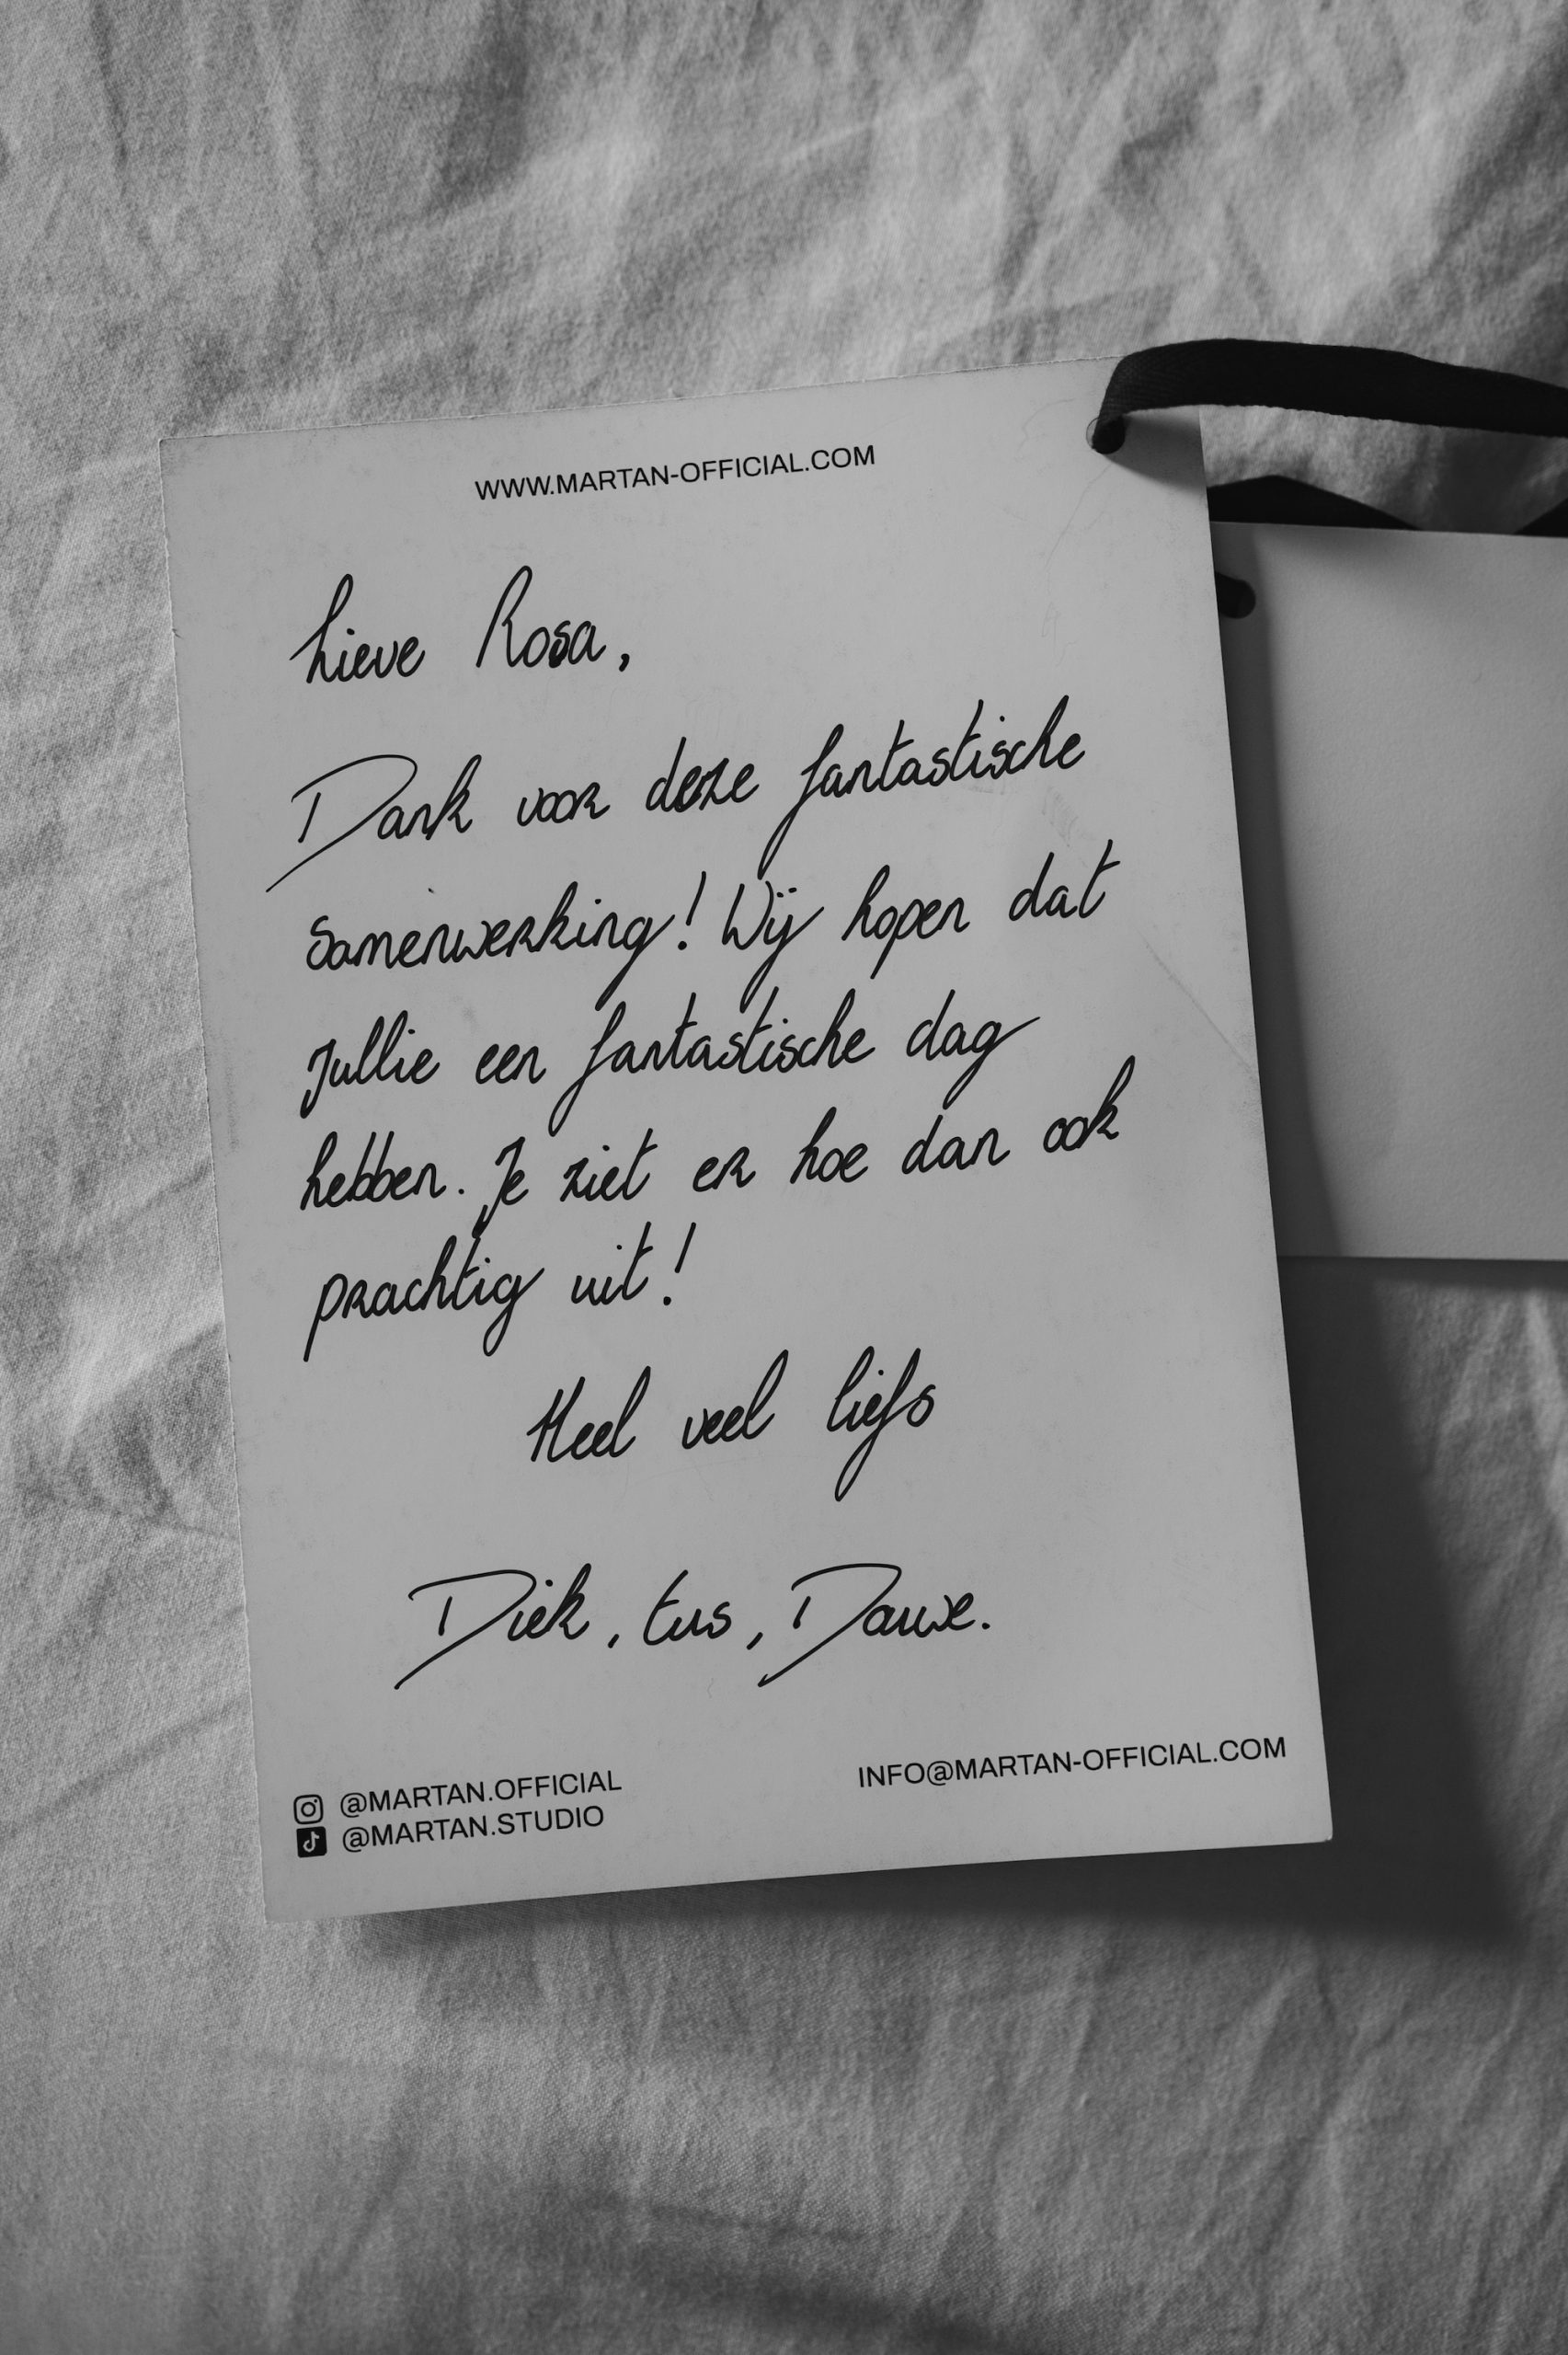 WWW.MARTAN-OFFICIAL.COM
Lieve Rosa,
Dank voor deze fantastische
samenwerking! Wij hopen dat
jullie een fantastische dag
hebben. Je ziet er hoe dan ook
prachtig uit!
Heel veel liefs
Diek, tus, Douwe.
@MARTAN.OFFICIAL
@MARTAN.STUDIO
INFO@MARTAN-OFFICIAL.COM